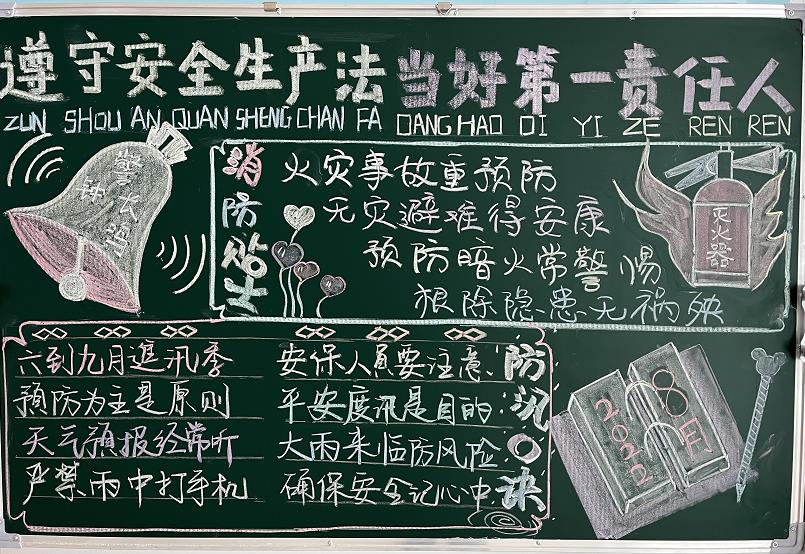 遵守安全生产法 当好第一责任人
ZUN SHOU AN QUAN SHENG CHAN FA DANG HAO DI YI ZE REN REN
警钟长鸣
消防贴士
火灾事故重预防
无灾避难得安康
预防暗火常警惕
根除隐患无祸殃
灭火器
六到九月進汛季
预防为主是原则
天气预报经常听
严禁雨中打手机
安保人员要注意
平安度汛是目的
大雨来临防风险
确保安全记心中
防汛口诀
2022
8月